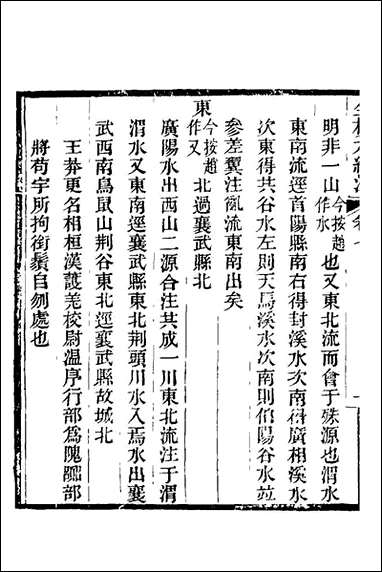 明非一山今按趙作水也又東北流而會于殊源也渭水
東南流逕首陽縣南右得封溪水次南得廣相溪水
次東得共谷水左則天馬溪水次南則伯陽谷水竝
參差翼注亂流東南出矣
東今按趙作又北過襄武縣北
廣陽水出西山二源合注共成一川東北流注于渭
渭水又東南逕襄武縣東北荆頭川水入焉水出襄
武西南鳥鼠山荆谷東北逕襄武縣故城北
王莽更名相桓漢護羌校尉温序行部爲隗囂部
將苟宇所拘銜鬚自刎處也